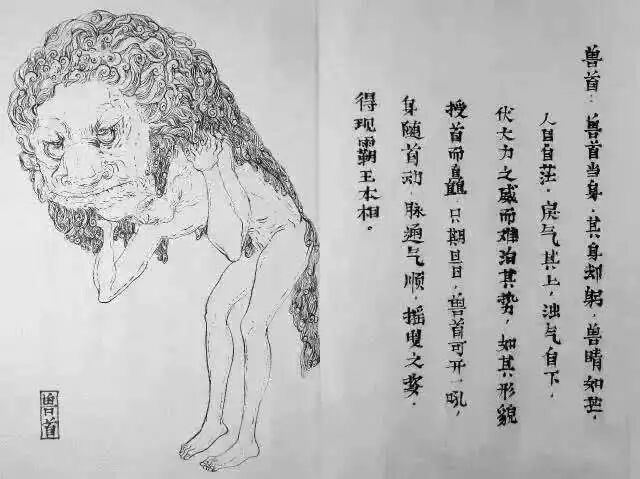 兽首：兽首当身，其身却躬，兽睛如芒，
人目自茫，戾气其上，浊气自下，
伏大力之威而难泊其势，如其形貌
授首而直，只期旦日，兽首可开一吼，
身随首动，脉通气顺，摇曳之姿，
得现霸王本相。
兽首